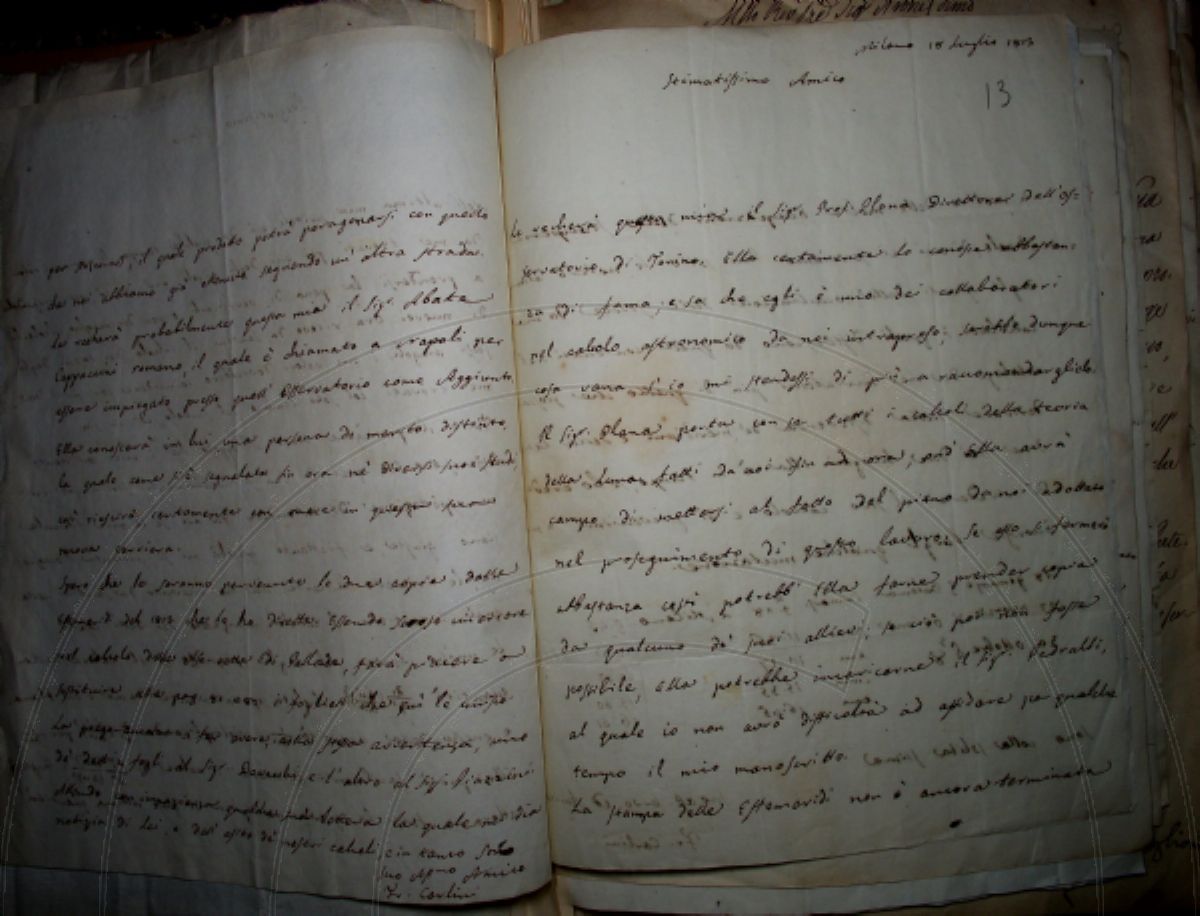 Milano 18 Luglio 1813
Stimatissimo Amico
13
Le recherà questa mia il Sigr. Prof. Plana Direttore dell'os-
servatorio di Torino. Ella certamente lo conosce abbastan-
za di fama, e sa che egli è mio dei collaboratori
nel calcolo astronomico da noi intrapreso; sarebbe dunque
cosa vana s'io mi stendessi di più a raccomandarglielo.
Il Sigr. Plana porta con se tutti i calcoli della teoria
della Luna fatti da noi fin ad ora; ond'Ella avrà
campo di mettersi al fatto del piano da noi adottato
nel proseguimento di questo lavoro; se esso si fermerà
abbastanza costì potrebb'Ella farne prender copia
da qualcuno de' suoi allievi; se ciò poi non fosse
possibile, Ella potrebbe incaricarne il Sigr. Pedralli,
al quale io non avrò difficoltà ad affidare per qualche
tempo il mio manoscritto.
La stampa delle Effemeridi non è ancora terminata
per, il quale prodotto potrà paragonarsi con quello
da noi abbiamo già ottenuto seguendo un'altra strada.
Le recherà probabilmente questa mia il Sigr. Abate
Cappaccini romano, il quale è chiamato a Napoli per
essere impiegato presso quell'Osservatorio come Aggiunto.
Ella conoscerà in lui una persona di merito distinto,
la quale come s'è segnalata fin ora ne' diversi suoi studi
così riescirà certamente con onore in questa sua
nuova carriera.
Spero che le saranno pervenute le due copie delle
Effemeridi del 1813 che le ho dirette. Essendo scorso un errore
nel calcolo delle di Pallade, farà piacere a
sostituire alla pag. i foglietti che quì le unisco
La prego stessa avvertenza, uno
di detti fogli al Sigr. e l'altro al Sigr. Piazzini
Attendo con impazienza qualche sua lettera la quale mi dia
notizia di Lei, e dell'esito de' nostri calcoli, e in tanto sono
suo Affmo Amico
Fr. Carlini